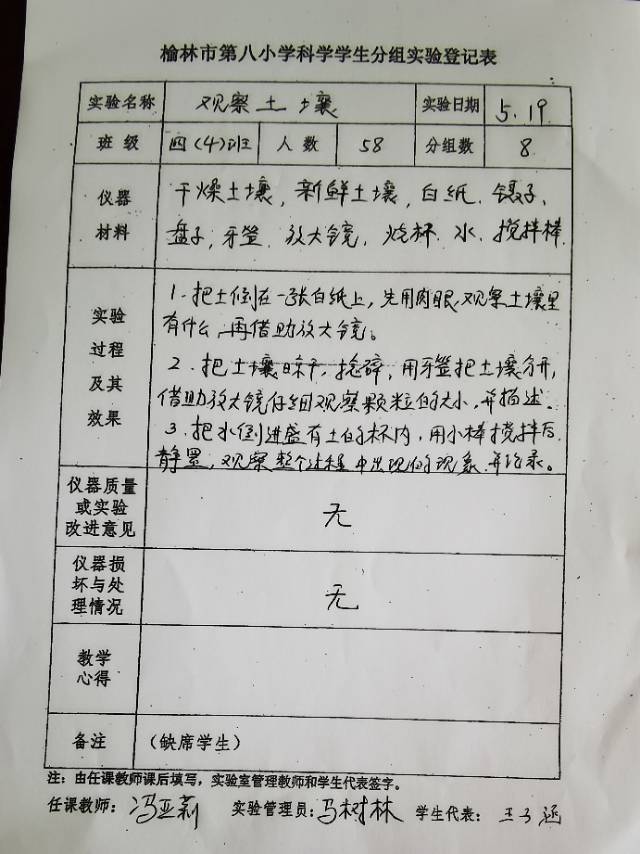 榆林市第八小学科学学生分组实验登记表
实验名称 观察土壤 实验日期 5.19
班级 四(4)班 人数 58 分组数 8
仪器材料
干燥土壤,新鲜土壤,白纸、镊子、
盘子,牙签、放大镜、烧杯、水、搅拌棒
实验过程及其效果
1.把土倒在一张白纸上,先用肉眼观察土壤里
有什么,再借助放大镜。
2.把土壤晾干,捻碎,用牙签把土壤分开,
借助放大镜仔细观察颗粒的大小,并描述。
3.把水倒进盛有土的杯内,用小棒搅拌后
静置,观察整个过程中出现的现象并记录。
仪器质量或实验改进意见 无
仪器损坏与处理情况 无
教学心得
备注 (缺席学生)
注:由任课教师课后填写,实验室管理教师和学生代表签字。
任课教师:冯亚莉 实验管理员:马树林 学生代表:王子涵